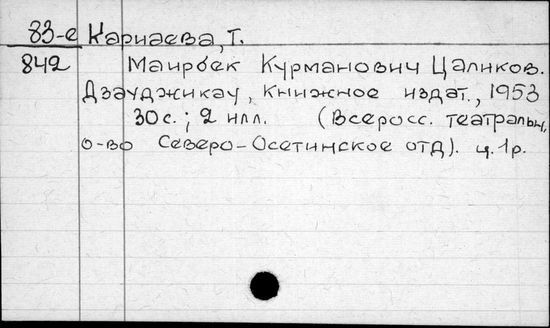 83-е Кариаева, Т.
842 Маирбек Курманович Цаликов.
Дзауджикау, книжное издат., 1953
30с.; 2 илл. (Всеросс. театральн.
о-во Северо-Осетинское отд). ц. 1 р.